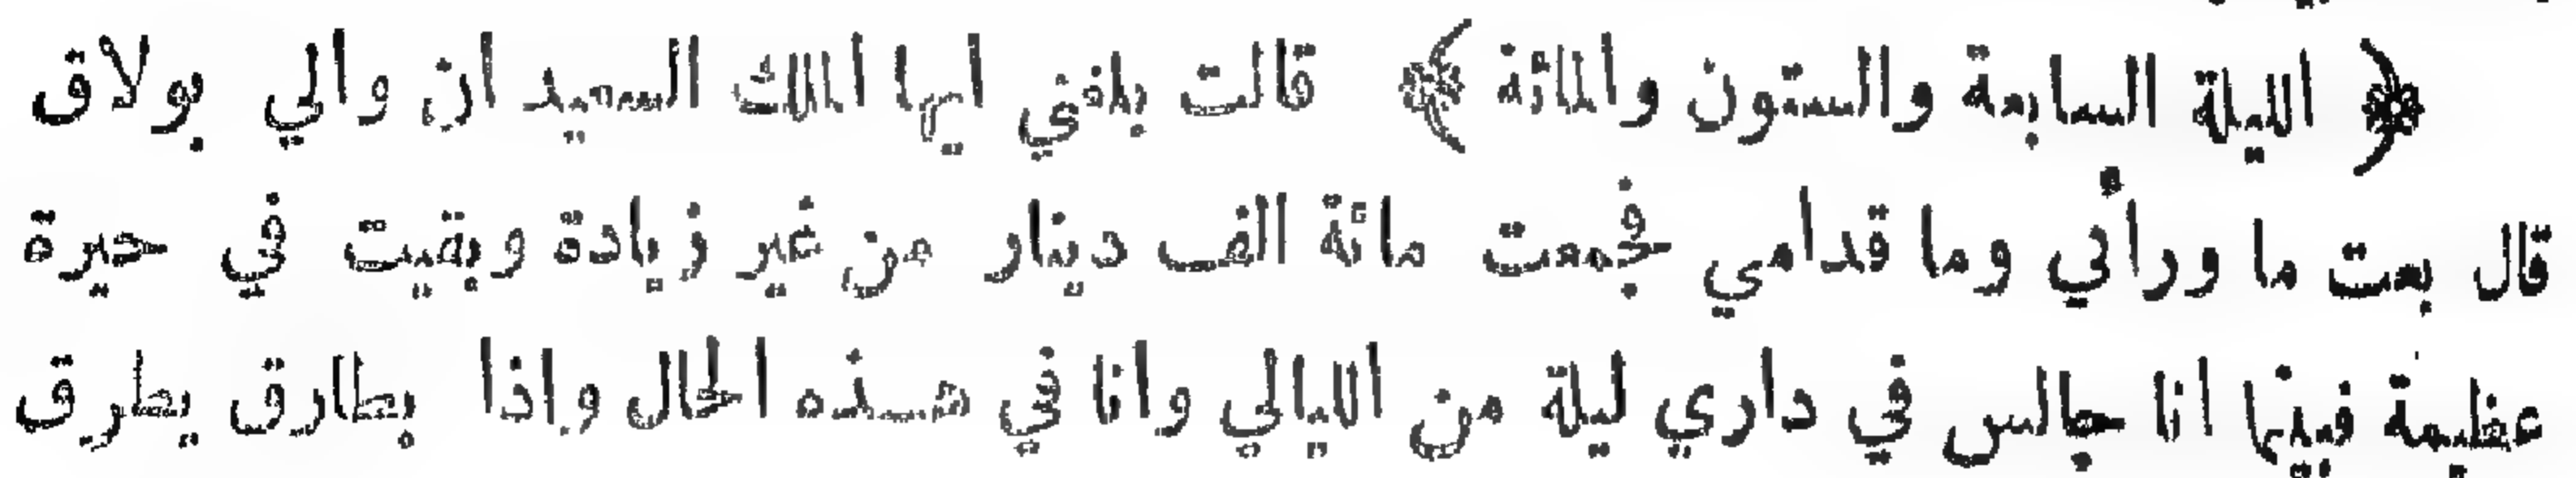 ﴿ الليلة السابعة والستون والمائة ﴾ قالت بلغني ايها الملك السعيد ان والي بولاق
قال بعت ما ورأني وما قدامي فجمعت مائة الف دينار من غير زيادة وبقيت في حيرة
عظيمة فبينما انا جالس في داري ليلة من الليالي وانا في هذه الحال واذا بطارق يطرق